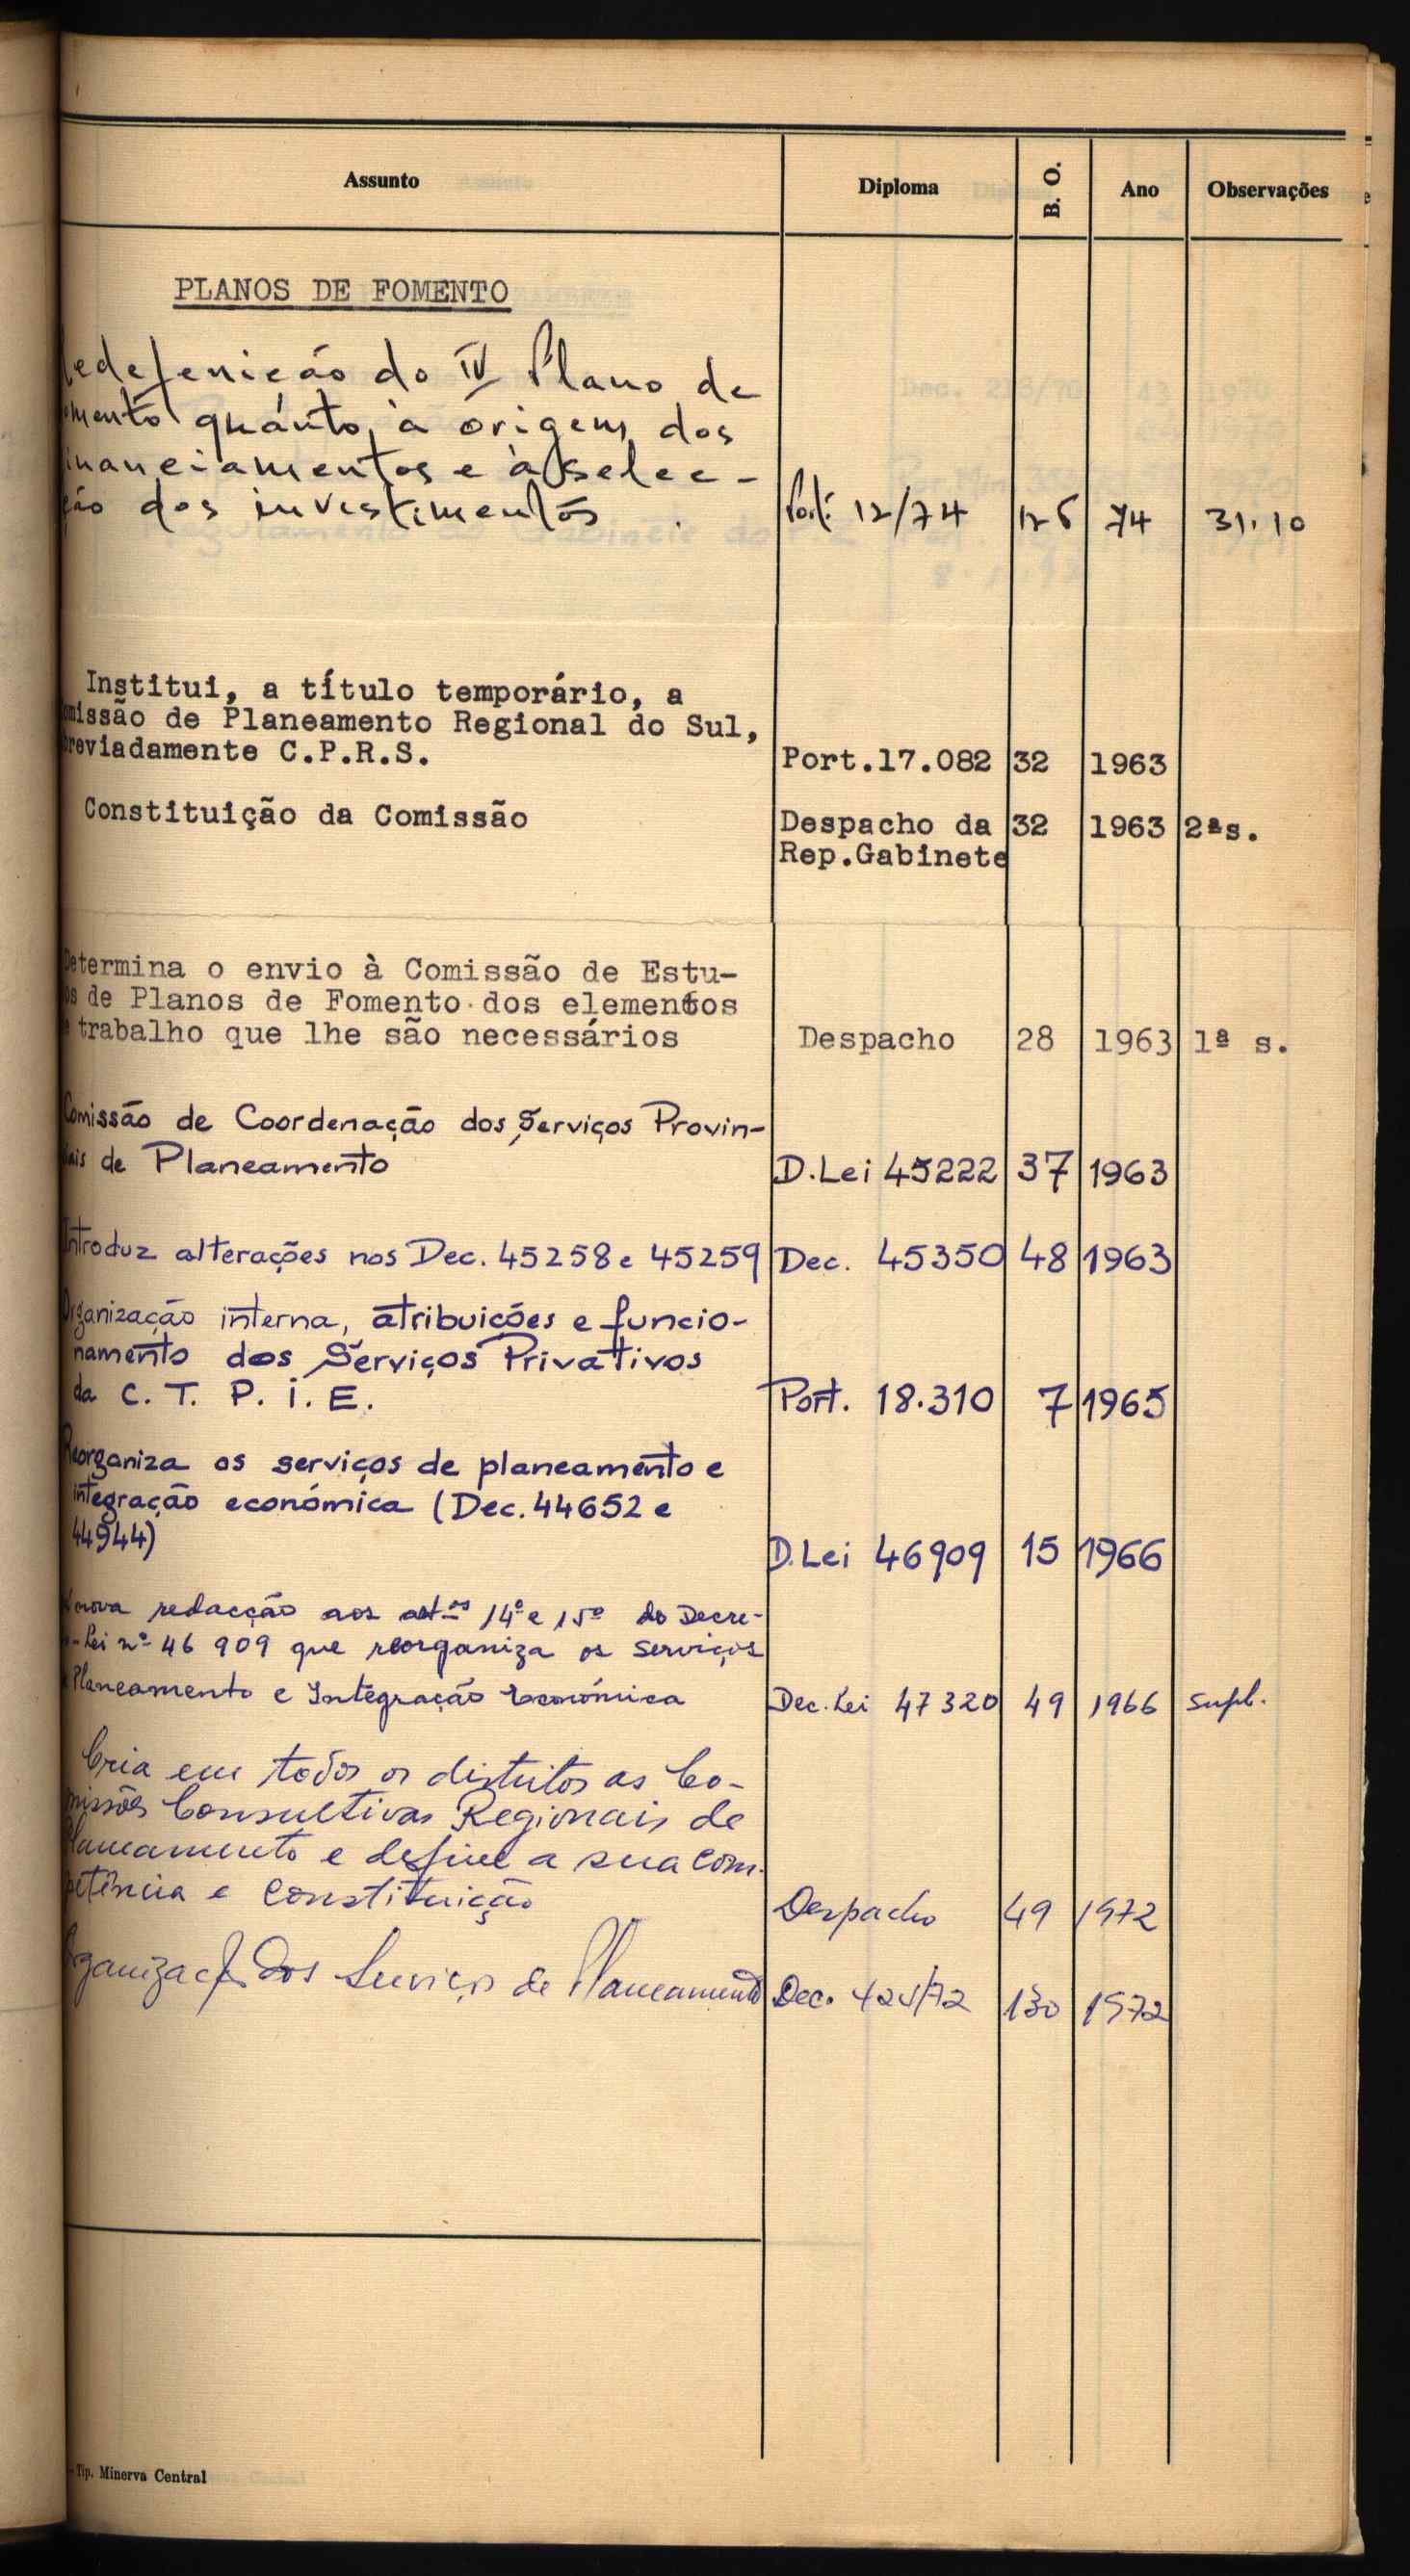 Assunto Diploma B. O. Ano Observações
PLANOS DE FOMENTO
Redefenieão do IV Plano de
omento quánto, à origem dos
inaneiamentos e à selec-
ção dos investimentos Port. 12/74 126 74 31.10
Institui, a título temporário, a
omissão de Planeamento Regional do Sul,
breviadamente C.P.R.S. Port.17.082 32 1963
Constituição da Comissão Despacho da 32 1963 2ªs.
Rep.Gabinete
Determina o envio à Comissão de Estu-
os de Planos de Fomento dos elementos
e trabalho que lhe são necessários Despacho 28 1963 1ª s.
Comissão de Coordenação dos Serviços Provin-
ciais de Planeamento D.Lei 45222 37 1963
Introduz alterações nos Dec. 45258 e 45259 Dec. 45350 48 1963
Organização interna, atribuições e funcio-
namento dos Serviços Privativos
da C. T. P. I. E. Port. 18.310 7 1965
Reorganiza os serviços de planeamento e
integração económica (Dec. 44652 e
44944) D.Lei 46909 15 1966
nova redacção aos art-os 14º e 15º do Decre-
-Lei nº 46 909 que reorganiza os serviços
Planeamento e Integração Económica Dec. Lei 47320 49 1966 supl.
Cria em todos os distritos as Co-
missões Consultivas Regionais de
Planeamento e define a sua com-
petência e constituição Despacho 49 1972
Organização dos Serviços de Planeamento Dec. /72 130 1972
- Tip. Minerva Central